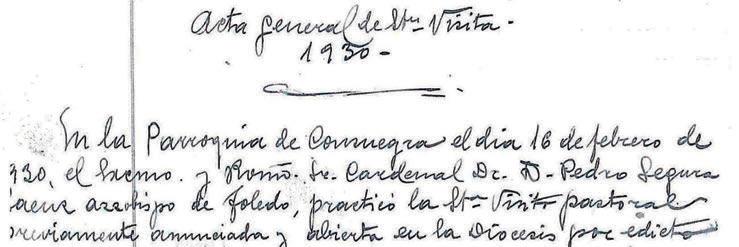 Acta general de Sta Visita.
1930-
En la Parroquia de Consuegra el dia 16 de febrero de
930, el Excmo. y Rvmo. Sr. Cardenal Dr. D. Pedro Segura
Saenz arzobispo de Toledo, practicó la Sta Visita pastoral
previamente anunciada y abierta en la Diocesis por edicto